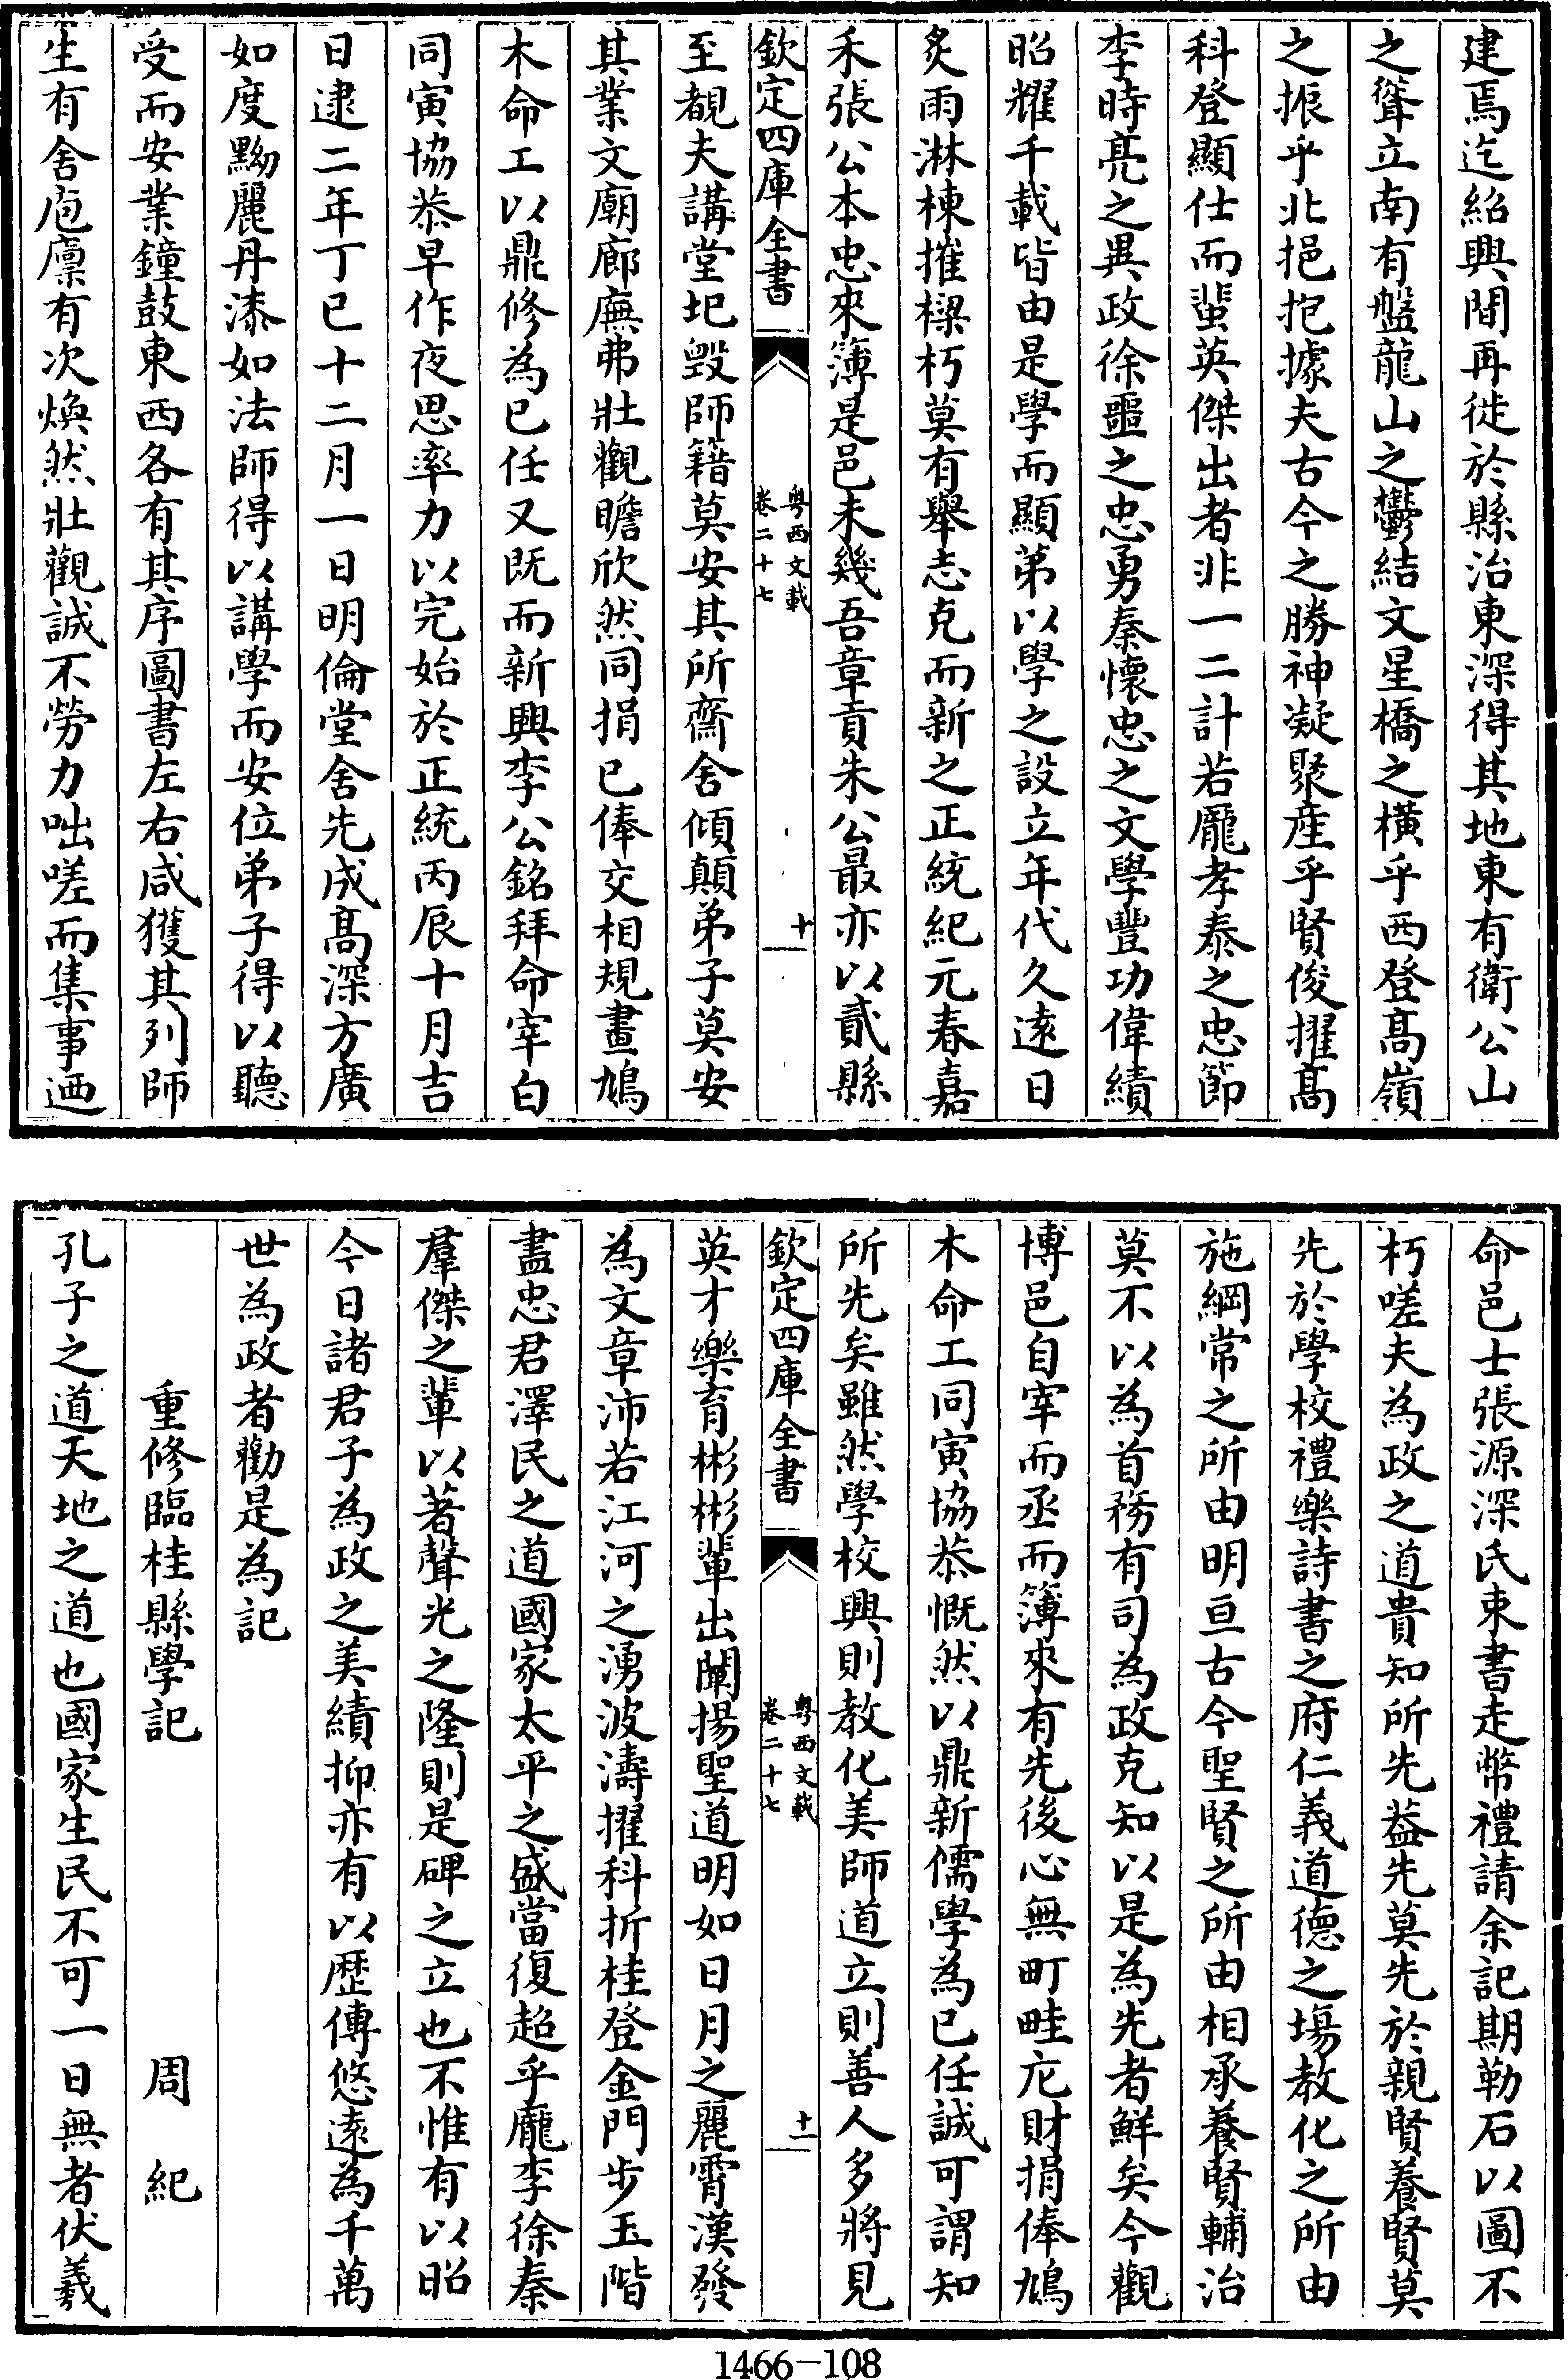 建焉迄紹興間再徙於縣治東深得其地東有衛公山
之聳立南有盤龍山之鬱結文星橋之橫乎西登髙嶺
之振乎北挹抱據夫古今之勝神凝聚産乎賢俊擢髙
科登顯仕而蜚英傑出者非一二計若龎孝泰之忠節
李時亮之異政徐噩之忠勇秦懷忠之文學豐功偉績
昭耀千載皆由是學而顯弟以學之設立年代久逺日
炙雨淋棟摧樑朽莫有舉志克而新之正統紀元春嘉
禾張公本忠來簿是邑未幾吾章貢朱公最亦以貳縣
欽定四庫全書
粤西文載
卷二十七
十
至覩夫講堂圯毀師籍莫安其所齋舍傾顛弟子莫安
其業文廟廊廡弗壯觀瞻欣然同捐已俸交相規畫鳩
木命工以鼎修為已任又既而新興李公銘拜命宰白
同寅協恭早作夜思率力以完始於正統丙辰十月吉
日逮二年丁巳十二月一日明倫堂舍先成髙深方廣
如度黝麗丹漆如法師得以講學而安位弟子得以聽
受而安業鐘鼓東西各有其序圖書左右咸獲其列師
生有舍庖廪有次煥然壯觀誠不勞力咄嗟而集事迺
命邑士張源深氏束書走幣禮請余記期勒石以圖不
朽嗟夫為政之道貴知所先益先莫先於親賢養賢莫
先於學校禮樂詩書之府仁義道德之場教化之所由
施綱常之所由明亘古今聖賢之所由相承養賢輔治
莫不以為首務有司為政克知以是為先者鮮矣今觀
博邑自宰而丞而簿來有先後心無町畦庀財捐俸鳩
木命工同寅協恭慨然以鼎新儒學為已任誠可謂知
所先矣雖然學校興則教化美師道立則善人多將見
欽定四庫全書
粤西文載
卷二十七
十一
英才樂育彬彬輩出闡揚聖道明如日月之麗霄漢發
為文章沛若江河之湧波濤擢科折桂登金門步玉階
盡忠君澤民之道國家太平之盛當復超乎龎李徐秦
羣傑之輩以著聲光之隆則是碑之立也不惟有以昭
今日諸君子為政之美績抑亦有以歴傳悠逺為千萬
世為政者勸是為記
重修臨桂縣學記 周紀
孔子之道天地之道也國家生民不可一日無者伏羲
1466-108